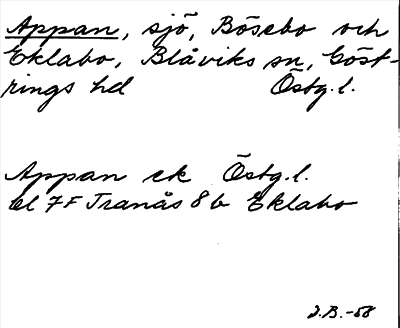 Appan, sjö, Bösebo och
Eklabo, Blåviks sn, Göst-
rings hd Östg.l.
Appan ek Östg.l.
bl 7F Tranås 8b Eklabo
J.B.-58